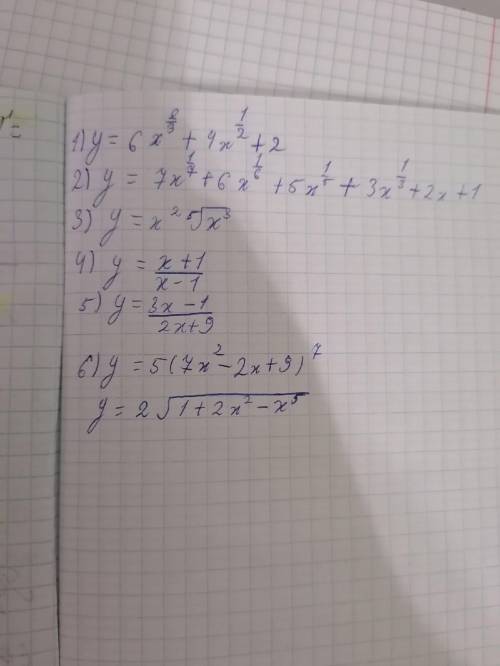 y'=
1) y = 6x^{2/3} + 4x^{1/2} + 2
2) y = 7x^{1/7} + 6x^{1/6} + 5x^{1/5} + 3x^{1/3} + 2x + 1
3) y = x² ⁵√x³
4) y = (x+1)/(x-1)
5) y = (3x-1)/(2x+9)
6) y = 5(7x² - 2x + 9)⁷
y = 2√(1 + 2x² - x⁵)